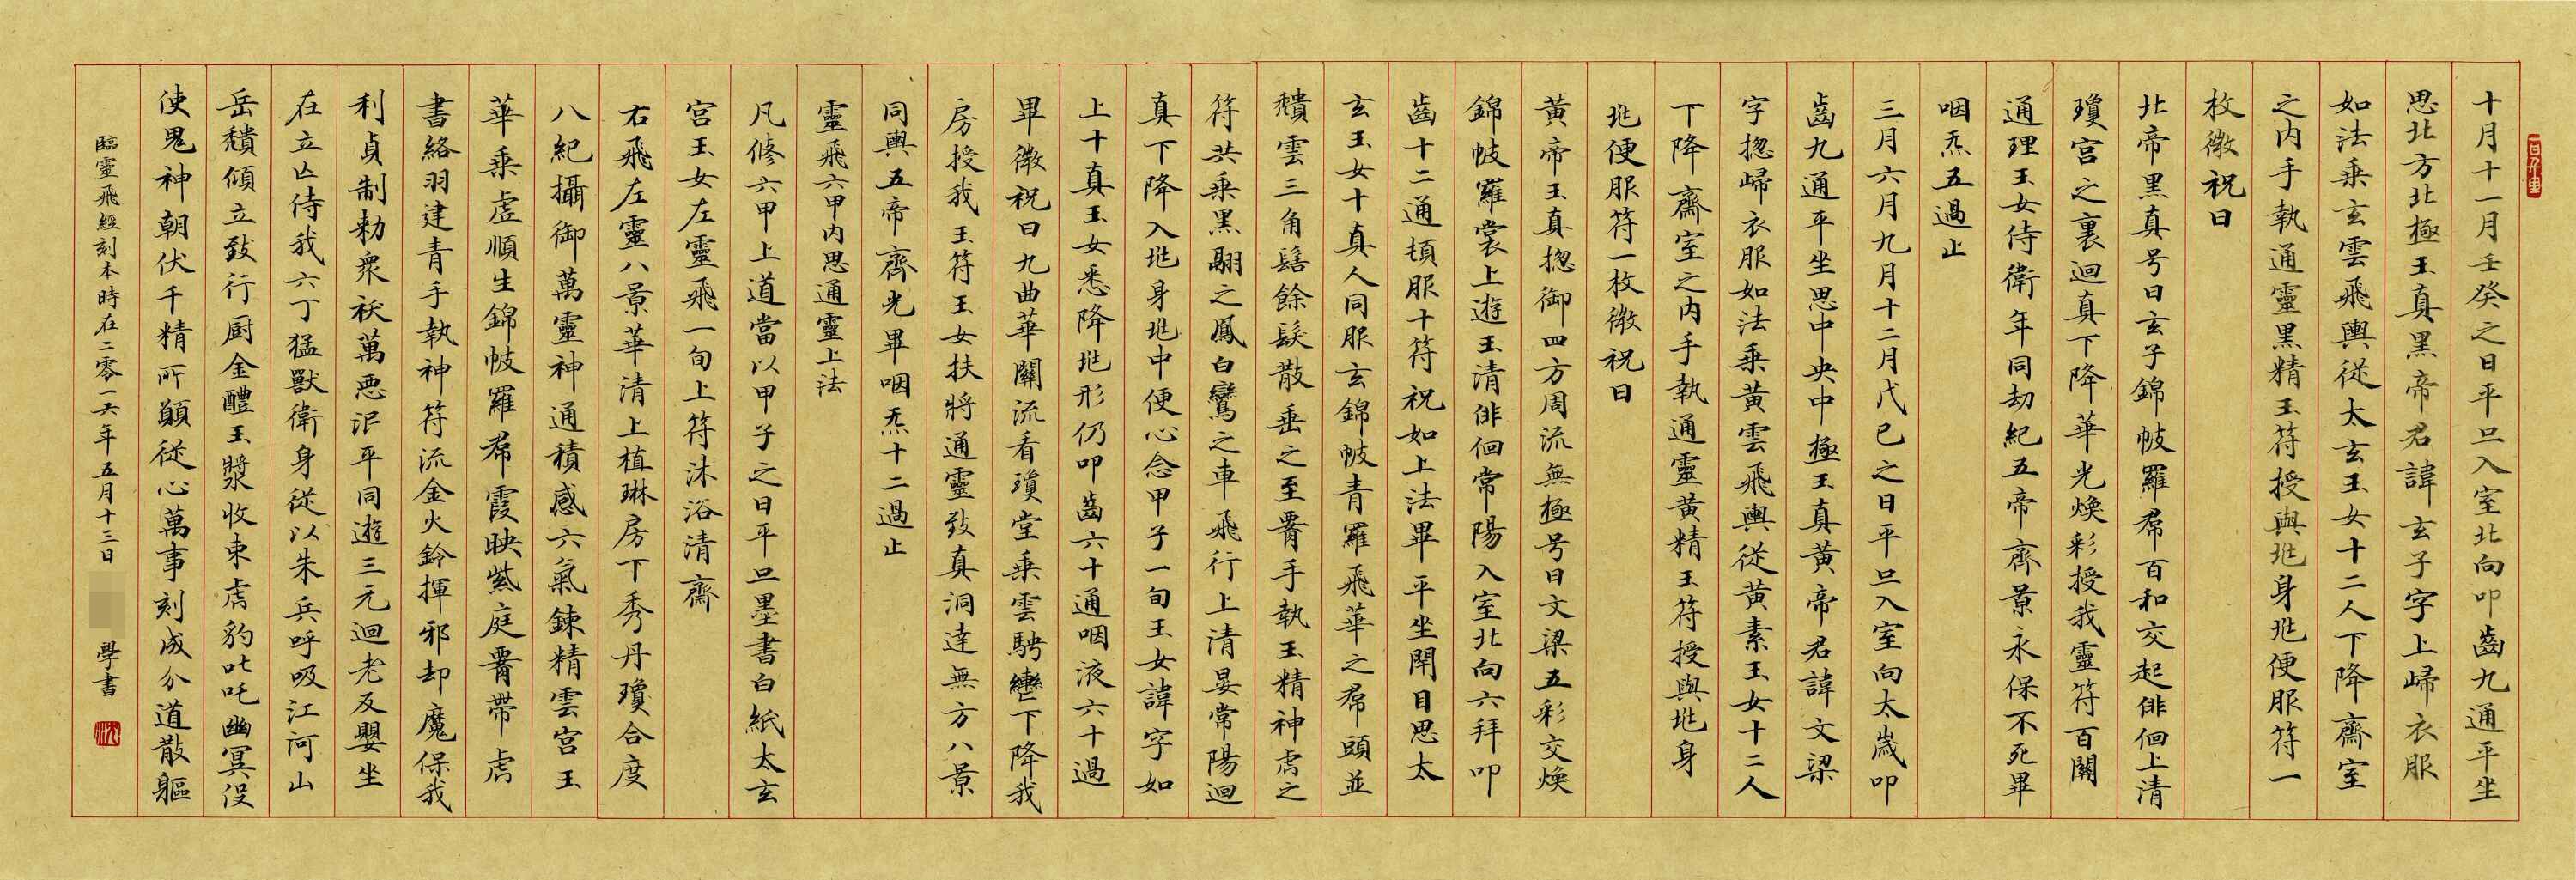 十月十一月壬癸之日平旦入室北向叩齒九通平坐
思北方北極玉真黑帝君諱玄子字上歸衣服
如法乘玄雲飛輿從太玄玉女十二人下降齋室
之内手執通靈黑精玉符授與兆身兆便服符一
枚微祝曰
北帝黑真号曰玄子錦帔羅帬百和交起俳佪上清
瓊宮之裏迴真下降華光煥彩授我靈符百關
通理玉女侍衛年同劫紀五帝齊景永保不死畢
咽炁五過止
三月六月九月十二月戊己之日平旦入室向太歲叩
齒九通平坐思中央中極玉真黃帝君諱文梁
字揔歸衣服如法乘黃雲飛輿從黃素玉女十二人
下降齋室之内手執通靈黃精玉符授與兆身
兆便服符一枚微祝曰
黃帝玉真揔御四方周流無極号曰文梁五彩交煥
錦帔羅裳上遊玉清俳佪常陽入室北向六拜叩
齒十二通頓服十符祝如上法畢平坐閇目思太
玄玉女十真人同服玄錦帔青羅飛華之帬頭並
頹雲三角髻餘髮散垂之至署手執玉精神虎之
符共乘黑翮之鳳白鸞之車飛行上清晏常陽迴
真下降入兆身兆中便心念甲子一旬玉女諱字如
上十真玉女悉降兆形仍叩齒六十通咽液六十過
畢微祝曰九曲華關流看瓊堂乘雲騁轡下降我
房授我玉符玉女扶將通靈致真洞達無方八景
同輿五帝齊光畢咽炁十二過止
靈飛六甲内思通靈上法
凡修六甲上道當以甲子之日平旦墨書白紙太玄
宮玉女左靈飛一旬上符沐浴清齋
右飛左靈八景華清上植琳房下秀丹瓊合度
八紀攝御萬靈神通積感六氣鍊精雲宮玉
華乘虛順生錦帔羅帬霞映紫庭署帶虎
書絡羽建青手執神符流金火鈴揮邪却魔保我
利貞制勑衆祅萬惡泯平同遊三元迴老反嬰坐
在立亡侍我六丁猛獸衛身從以朱兵呼吸江河山
岳頹傾立致行廚金醴玉漿收束虎豹叱吒幽冥役
使鬼神朝伏千精所願從心萬事刻成分道散軀
臨靈飛經刻本時在二零一六年五月十三日 學書